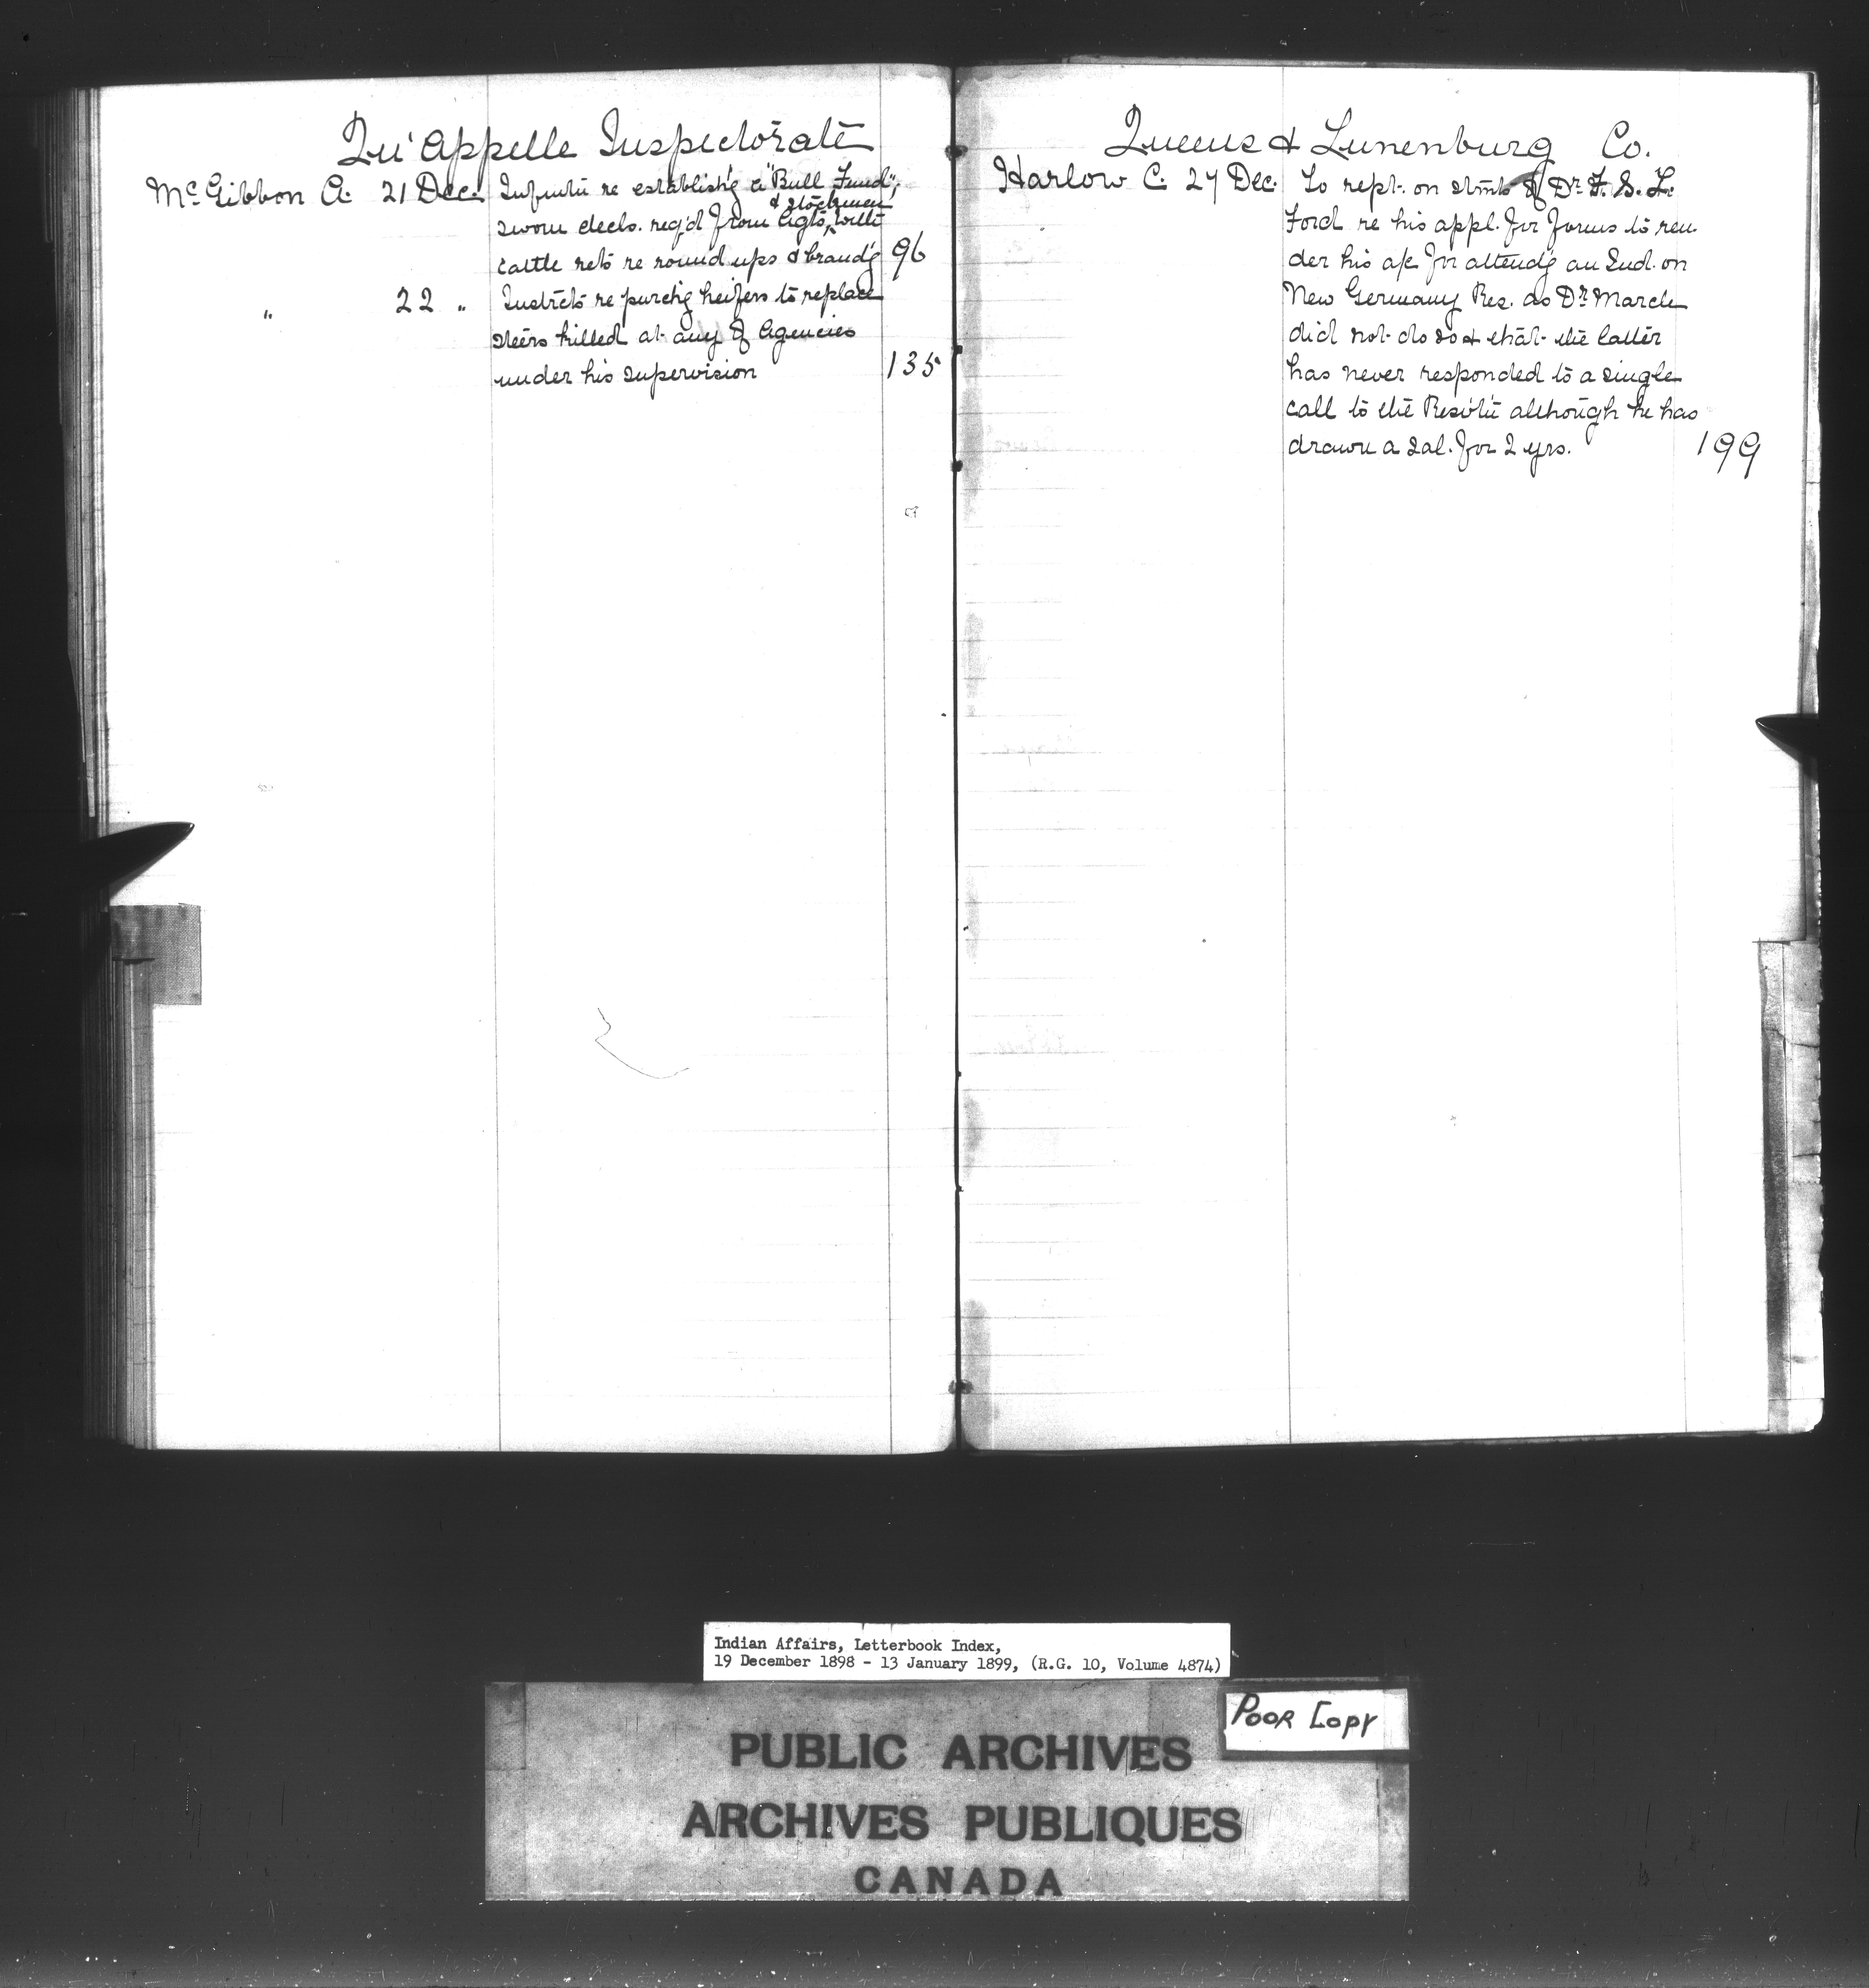 Qu'Appelle Inspectorate
McGibbon A. 21 Dec. Infmtn re establish'g a "Bull Fund",
& Stockmen
sworn decls. req'd from Agts, with
cattle rets re round ups & brand'g 96
" 22 " Instrcts re purch'g heifers to replace
steers killed at any of Agencies
under his supervision 135
Queens & Lunenburg Co.
Harlow C. 27 Dec. To rept. on stmts of Dr. F. S. L.
Ford re his appl. for forms to ren-
der his a/c for attend'g an Ind. on
New Germany Res. as Dr. March
did not do so & that the latter
has never responded to a single
call to the Resvtn although he has
drawn a sal. for 2 yrs. 199
Indian Affairs, Letterbook Index,
19 December 1898 - 13 January 1899, (R.G. 10, Volume 4874)
Poor Copy
PUBLIC ARCHIVES
ARCHIVES PUBLIQUES
CANADA